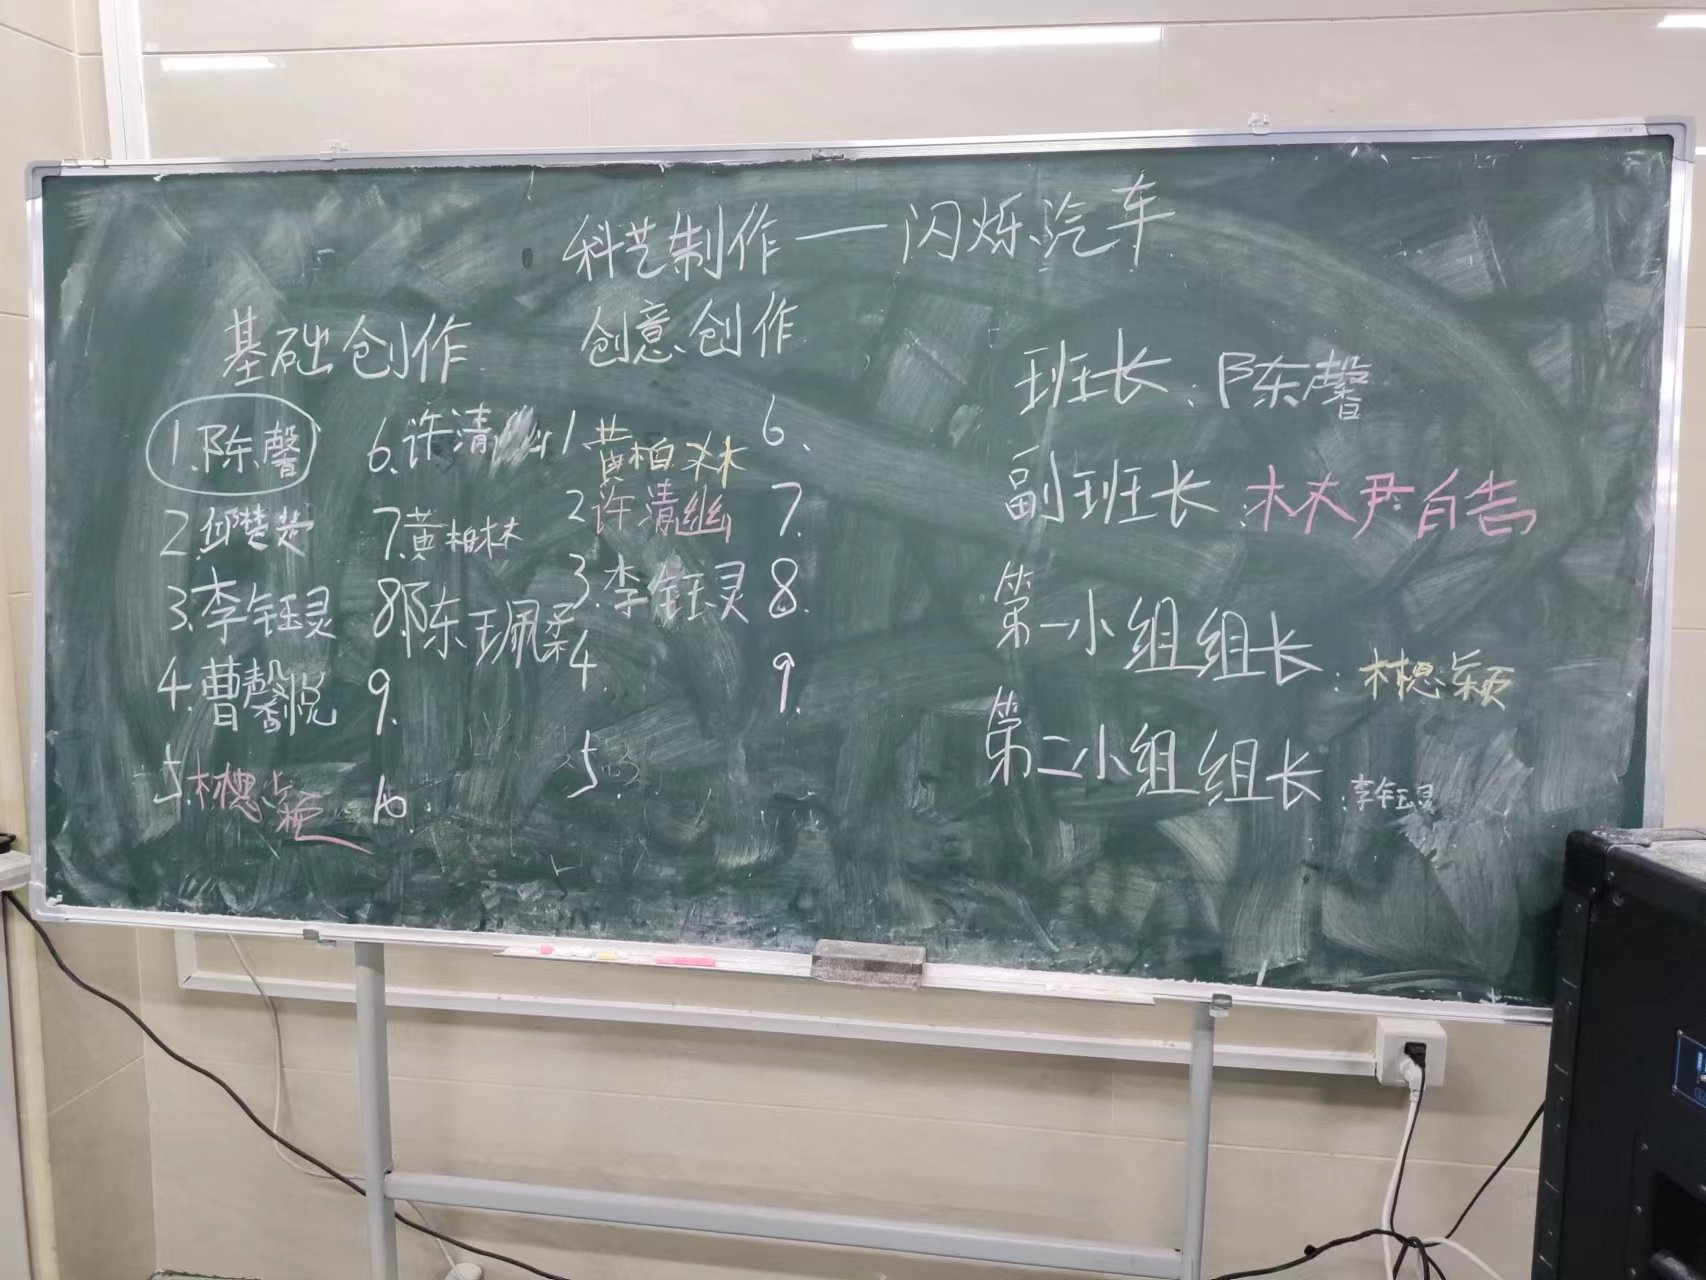 科艺制作——闪烁汽车
基础创作
1.陈馨
2.邱楚
3.李钰灵
4.曹馨悦
5.林 颖
6.许清幽
7.黄柏林
8.陈珮柔
9.
10.
创意创作
1.黄柏林
2.许清幽
3.李钰灵
4.
5.
6.
7.
8.
9.
班长：陈馨
副班长：林尹皓
第一小组组长：林 颖
第二小组组长：李钰灵